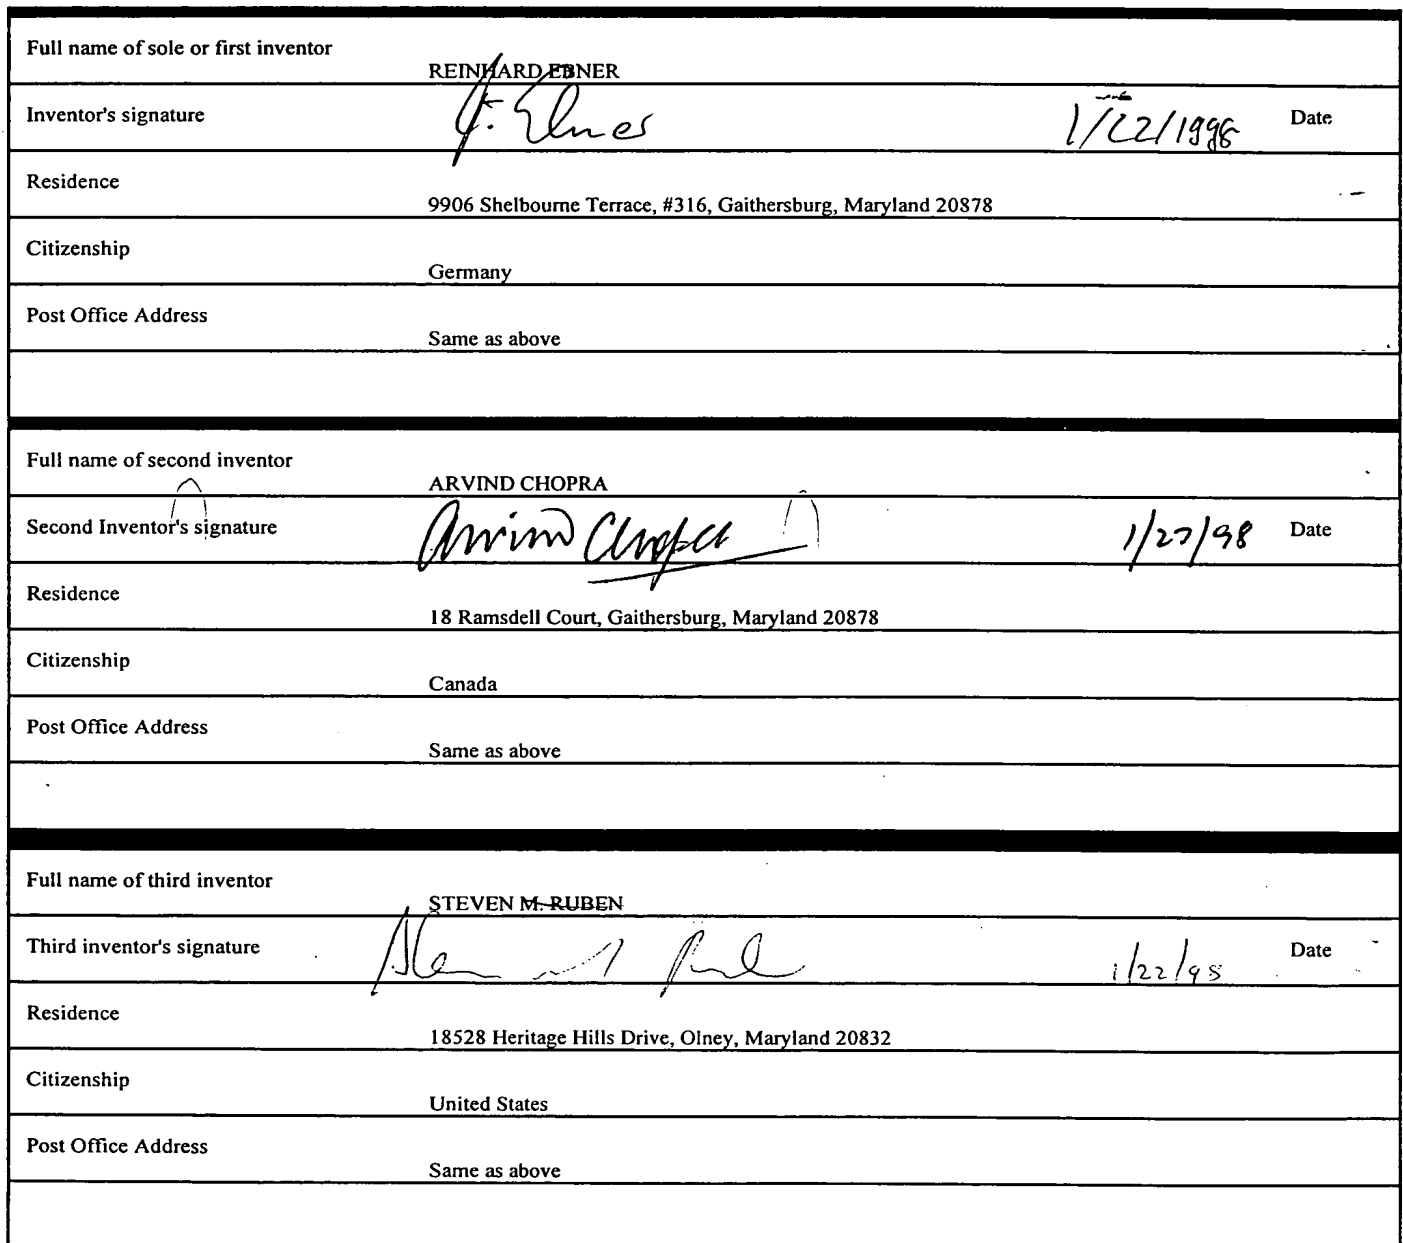 Full name of sole or first inventor
REINHARD EBNER
Inventor's signature R. Ebner 1/22/1998 Date
Residence
9906 Shelbourne Terrace, #316, Gaithersburg, Maryland 20878
Citizenship
Germany
Post Office Address
Same as above
Full name of second inventor
ARVIND CHOPRA
Second Inventor's signature Arvind Chopra 1/27/98 Date
Residence
18 Ramsdell Court, Gaithersburg, Maryland 20878
Citizenship
Canada
Post Office Address
Same as above
Full name of third inventor
STEVEN M. RUBEN
Third inventor's signature 1/22/98 Date
Residence
18528 Heritage Hills Drive, Olney, Maryland 20832
Citizenship
United States
Post Office Address
Same as above